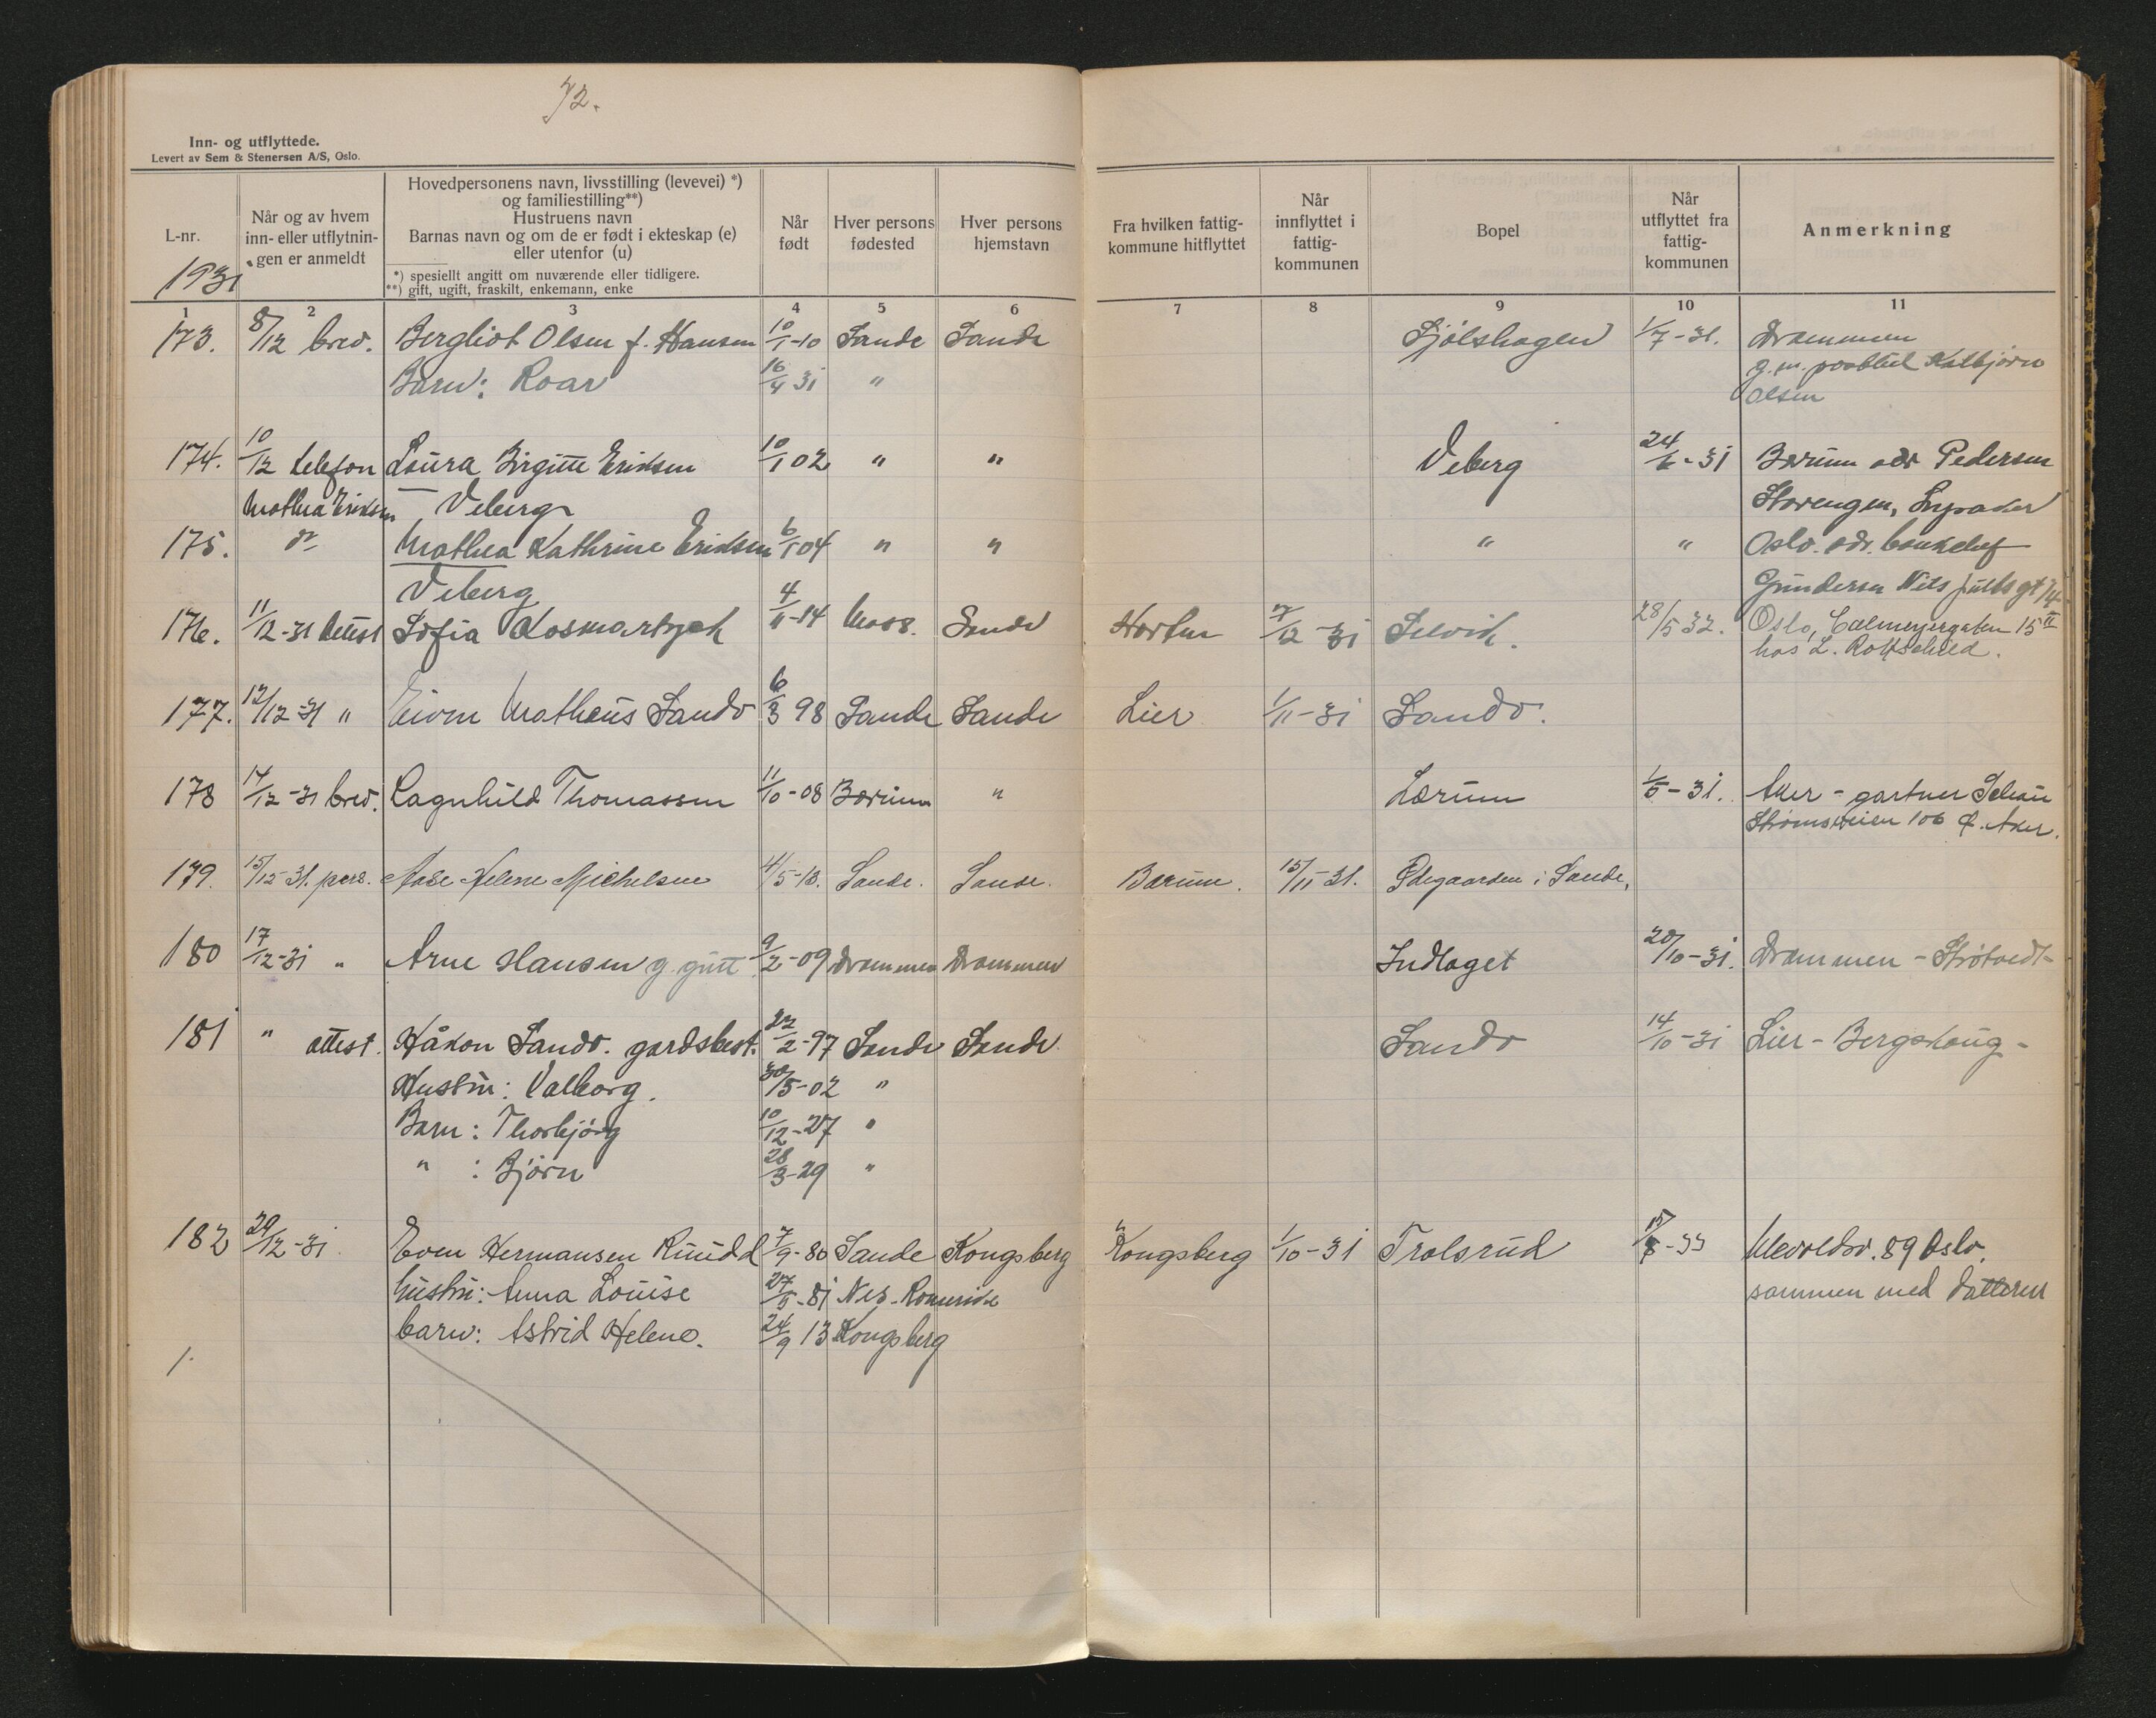 72.
Inn- og utflyttede.
Levert av Sem & Stenersen A/S, Oslo.
L-nr.
1931
Når og av hvem
inn- eller utflytnin-
gen er anmeldt
Hovedpersonens navn, livsstilling (levevei) *)
og familiestilling**)
Hustruens navn
Barnas navn og om de er født i ekteskap (e)
eller utenfor (u)
*) spesiellt angitt om nuværende eller tidligere.
**) gift, ugift, fraskilt, enkemann, enke
Når
født
Hver persons
fødested
Hver persons
hjemstavn
Fra hvilken fattig-
kommune hitflyttet
Når
innflyttet i
fattig-
kommunen
Bopel
Når
utflyttet fra
fattig-
kommunen
Anmerkning
1 2 3 4 5 6 7 8 9 10 11
173. 8/12 brev. Bergliot Olsen f. Hansen 10/1-10 Sande Sande Sjølshagen 1/7-31. Drammen
Barn: Roar 16/4 31 " g.m. Kolbjørn
Olsen
174. 10/12 telefon Laura Birgitte Eriksen 10/1 02 " " Veberg 24/6-31 Bærum adr Pedersen
Mathea Eriksen Veberg Storengen, Lysaker
175. do Mathea Kathrine Eriksen 6/1 04 " " " " Oslo. adr. bankchef
Veberg Gundersen Nils Juels gt
176. 11/12-31 attest Sofia Kosmartych 4/11-14 Moss. Sande Horten 7/12-31 Selvik. 28/5 32. Oslo, Calmeyergaten 15 II
hos L. Rottschild.
177. 12/12-31 " Eivin Matheus Sando 6/3 98 Sande Sande Lier 1/11-31 Sando.
178 14/12-31 brev. Ragnhild Thomassen 11/10-08 Bærum " Lærum 1/5-31. Aker - gartner
Strømsveien 106 Ø. Aker.
179. 15/12-31. pers. Aase Helene Michelsen 4/5-13. Sande. Sande. Bærum. 15/11-31. Ødegaarden i Sande.
180 17/12-31 " Arne Hansen g. gutt 9/2-09 Drammen Drammen Indlaget 20/10-31. Drammen - Strøtvedt-
181 " attest. Håkon Sando. gardsbest. 22/2-97 Sande Sande Sando 14/10-31 Lier - Bergskaug -
Hustru: Valborg. 30/5-02 "
Barn: Thorbjørg 10/12-27 "
" : Bjørn 28/3-29 "
182 29/12-31 Even Hermansen Ruudd 7/9-80 Sande Kongsberg Kongsberg 1/10-31 Trolsrud 15/8-33 Ulevoldsv. 89 Oslo.
hustru: Anna Louise 27/5-81 Nes-Romerike sammen med datteren
barn: Astrid Helene. 24/9 13 Kongsberg
1.